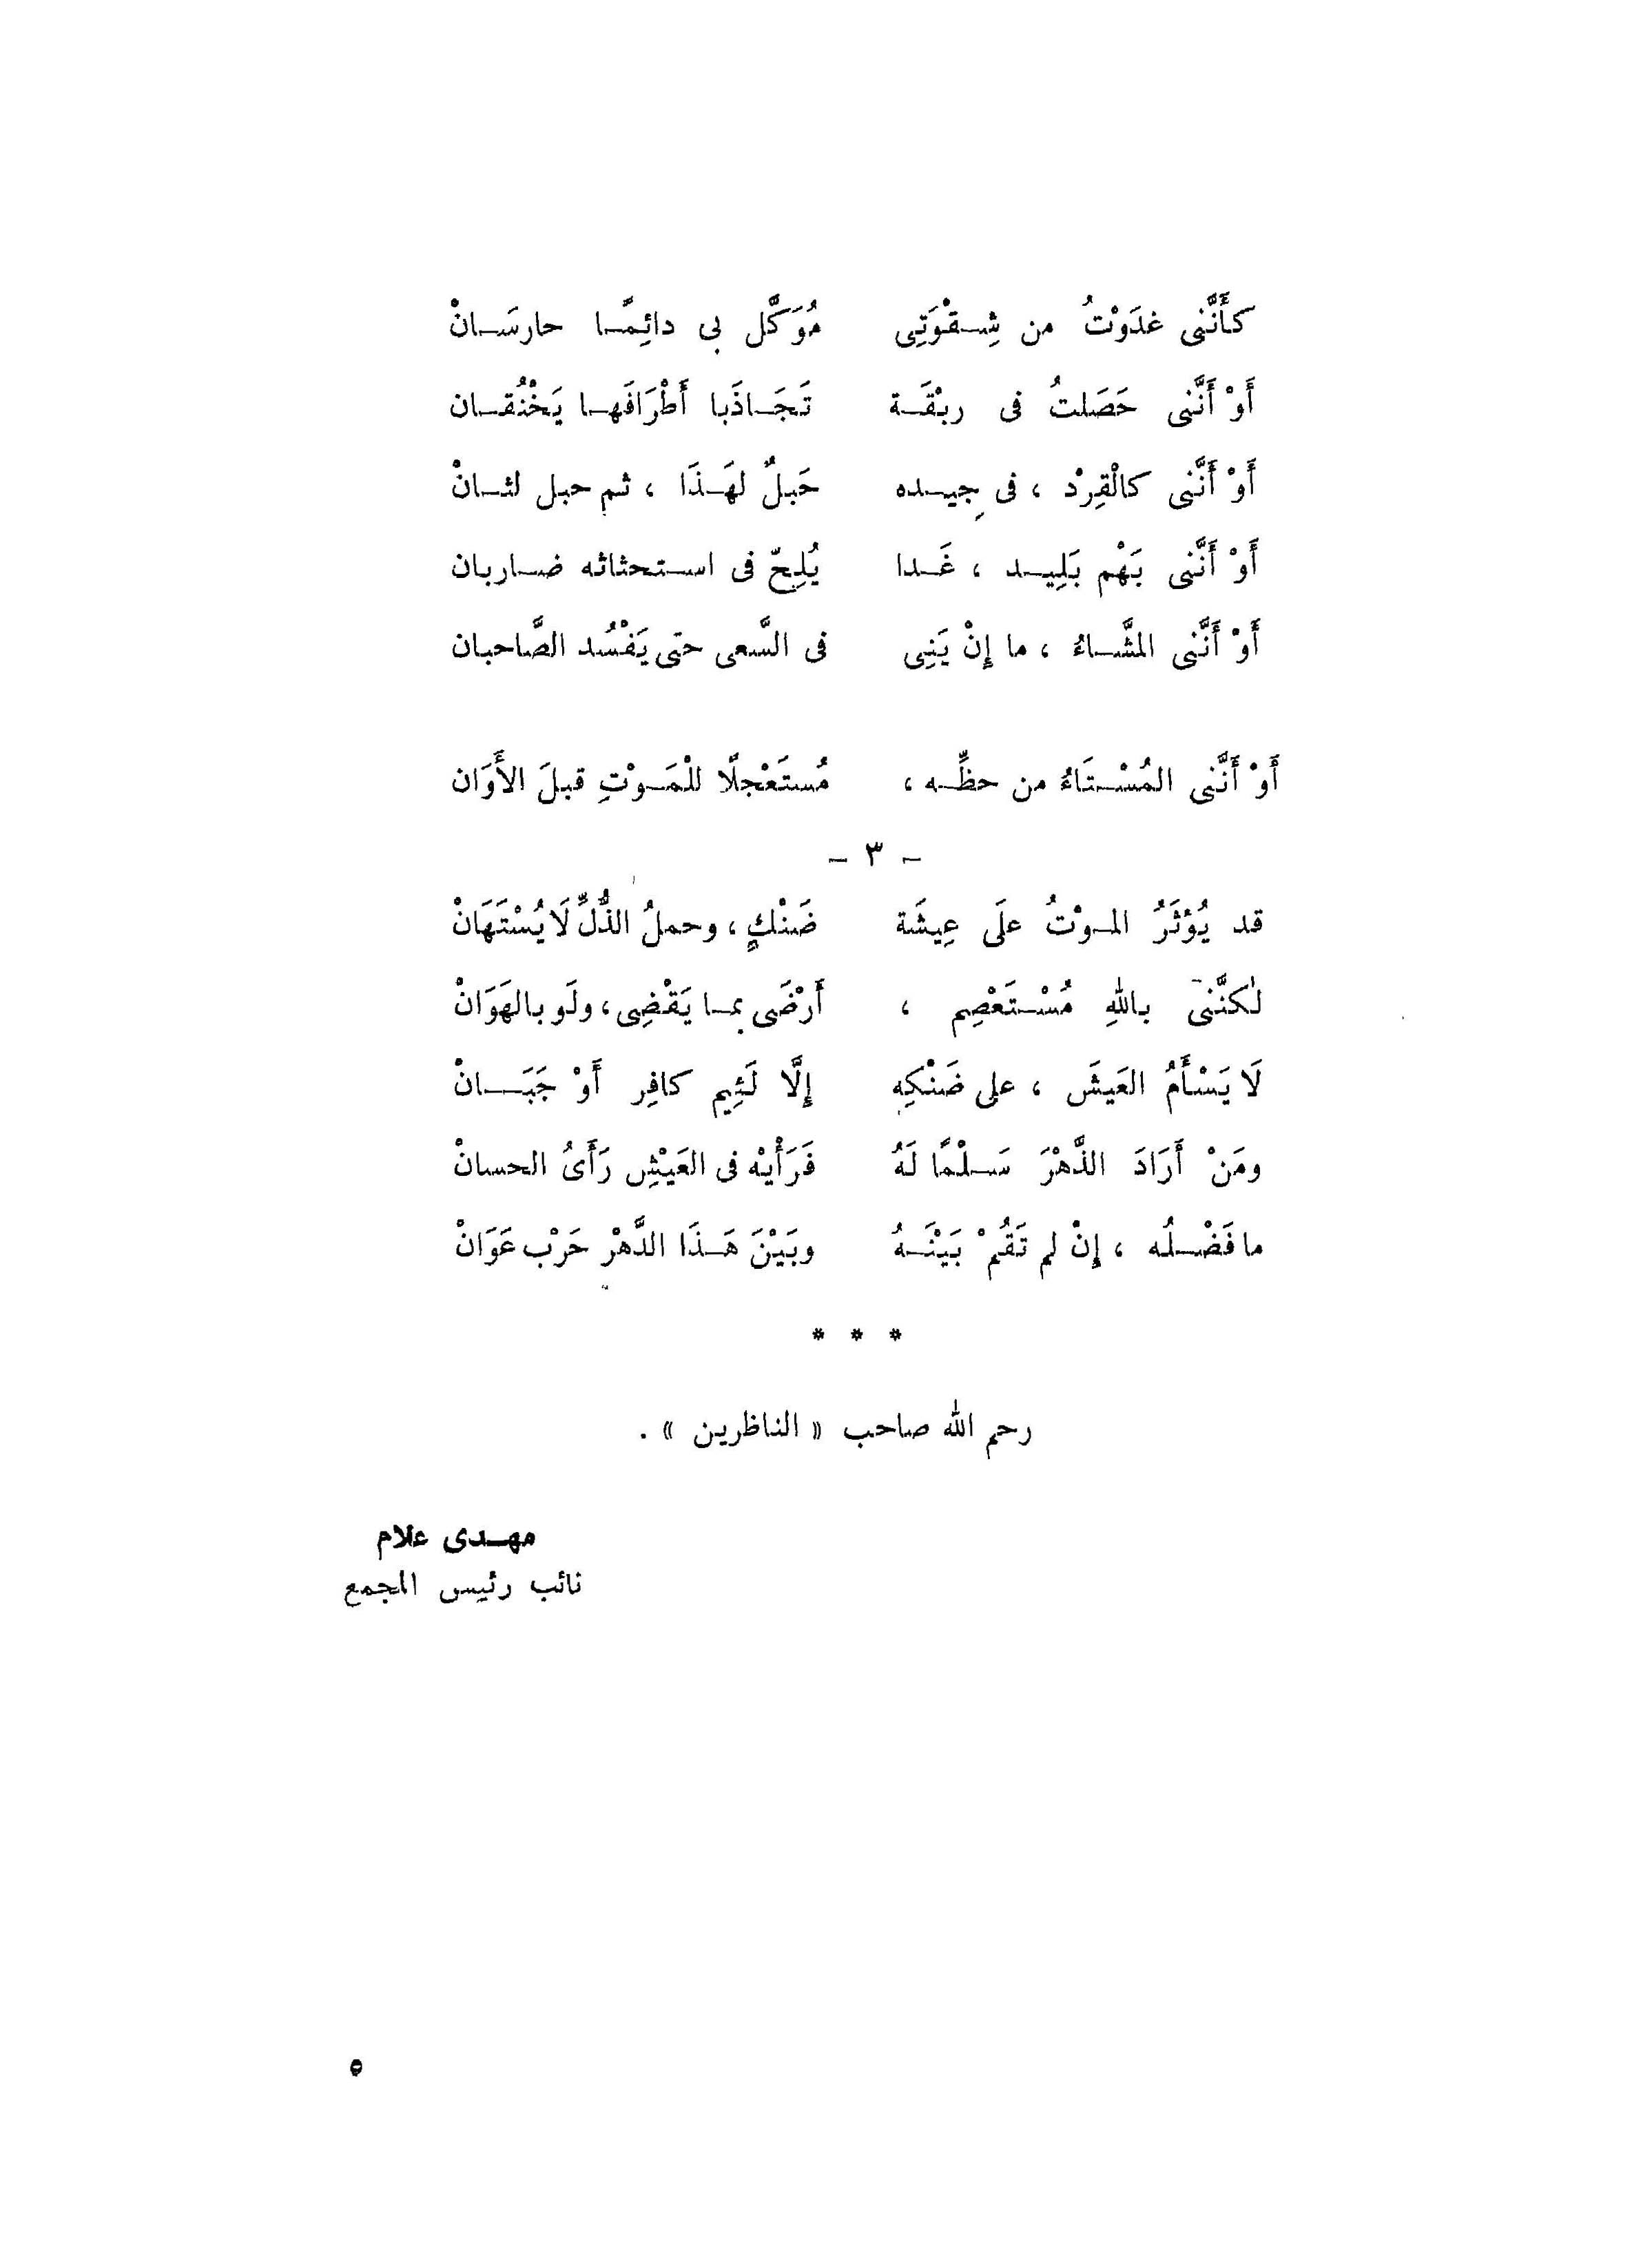 كأَنَّنى غدَوْتُ من شِقْوَتِى مُوَكَّل بى دائِمًا حارسَانْ
أَوْ أَنَّنى حَصَلتُ فى ربْقَة تَجَاذَبا أَطْرَافَها يَخْنُقان
أَوْ أَنَّنى كالْقِرْد ، فى جِيده حَبلٌ لهَذَا ، ثم حبل لثانْ
أَوْ أَنَّنى بَهْم بَلِيد ، غَدا يُلِحّ فى استحثاثه ضاربان
أَوْ أَنَّنى المشَّاءُ ، ما إِنْ يَنِى فى السَّعى حتى يَفْسُد الصَّاحبان
أَوْ أَنَّنى المُسْتَاءُ من حظِّه ، مُستَعْجلًا للْمَوْتِ قبلَ الأَوَان
– ٣ –
قد يُؤثَرُ الموْتُ علَى عِيشَة ضَنْكٍ ، وحملُ الذُّلِّ لَا يُسْتَهَانْ
لٰكنَّنى باللهِ مُسْتَعْصِم ، أَرْضَى بما يَقْضِى ، ولَو بالهَوَانْ
لَا يَسْأَمُ العَيشَ ، على ضَنْكِه إِلَّا لَئِيم كافِر أَوْ جَبَانْ
ومَنْ أَرَادَ الدَّهْرَ سَلْمًا لَهُ فَرَأْيْه فى العَيْشِ رَأَىُ الحسانْ
ما فَضْلُه ، إِنْ لم تَقُمْ بَيْنَهُ وبَيْنَ هَذَا الدَّهْر حَرْب عَوَانْ
* * *
رحم الله صاحب « الناظرين » .
مهدى علام
نائب رئيس المجمع
٥